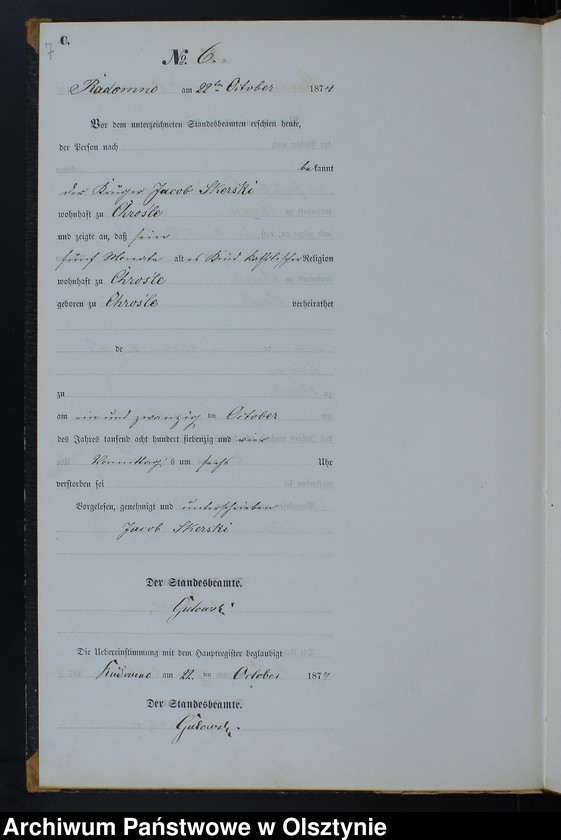 7
C.
No. 6.
Radomno am 22ten October 1874
Vor dem unterzeichneten Standesbeamten erschien heute,
der Person nach
bekannt
der Krüger Jacob Skerski
wohnhaft zu Chrosle
und zeigte an, daß sein
fünf Monate altes Kind katholischer Religion
wohnhaft zu Chrosle
geboren zu Chrosle verheirathet
de
zu
am ein und zwanzig ten October
des Jahres tausend acht hundert siebenzig und vier
Vormittags um sechs Uhr
verstorben sei
Vorgelesen, genehmigt und unterschrieben
Jacob Skerski
Der Standesbeamte.
Gutowski
Die Uebereinstimmung mit dem Hauptregister beglaubigt
Radomno am 22. ten October 1874
Der Standesbeamte.
Gutowski
Archiwum Państwowe w Olsztynie